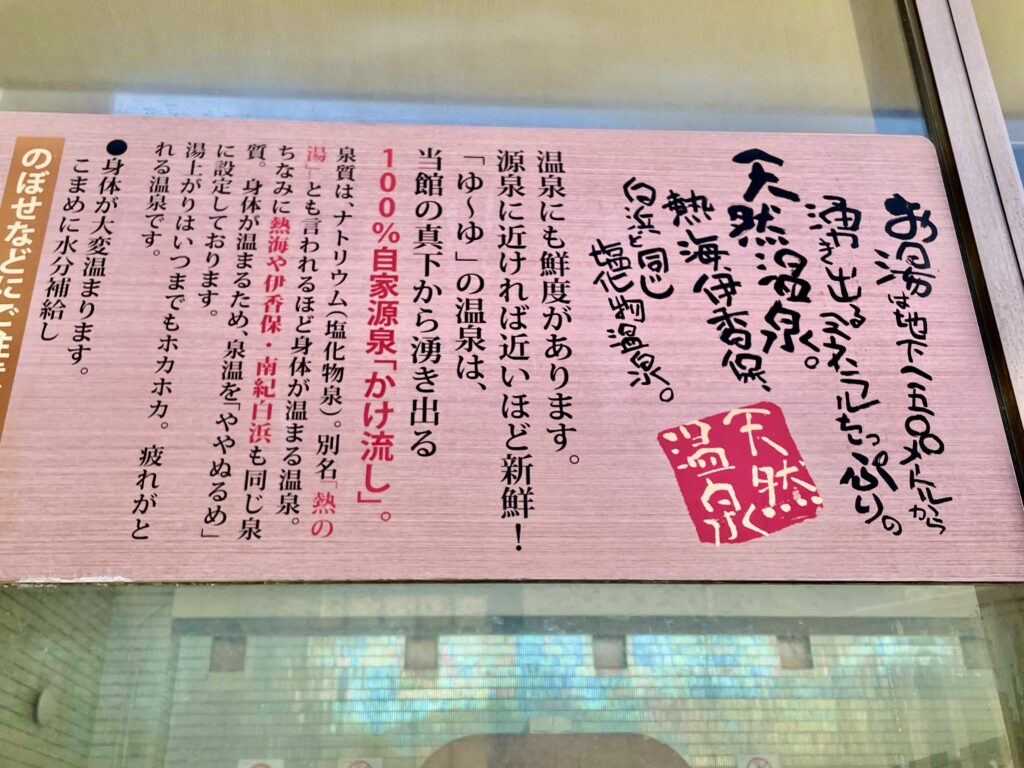 お湯は地下一五〇〇メートルから
湧き出るミネラルたっぷりの
天然温泉。
熱海、伊香保、
白浜と同じ
塩化物温泉。
天然
温泉
温泉にも鮮度があります。
源泉に近ければ近いほど新鮮！
「ゆ～ゆ」の温泉は、
当館の真下から湧き出る
100％自家源泉「かけ流し」。
泉質は、ナトリウム（塩化物泉）。別名「熱の
湯」とも言われるほど身体が温まる温泉。
ちなみに熱海や伊香保・南紀白浜も同じ泉
質。身体が温まるため、泉温を「ややぬるめ」
に設定しております。
湯上がりはいつまでもホカホカ。疲れがと
れる温泉です。
●身体が大変温まります。
こまめに水分補給し
のぼせなどにご注